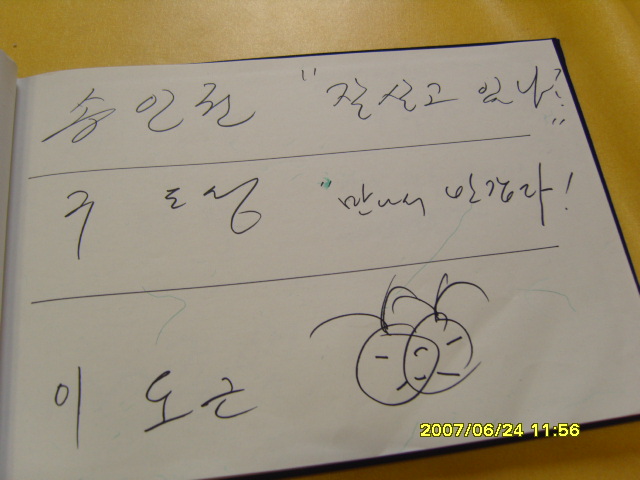 송인권 "잘살고 있나?"
구도성 "만나서 반갑다!
이도근
2007/06/24 11:56